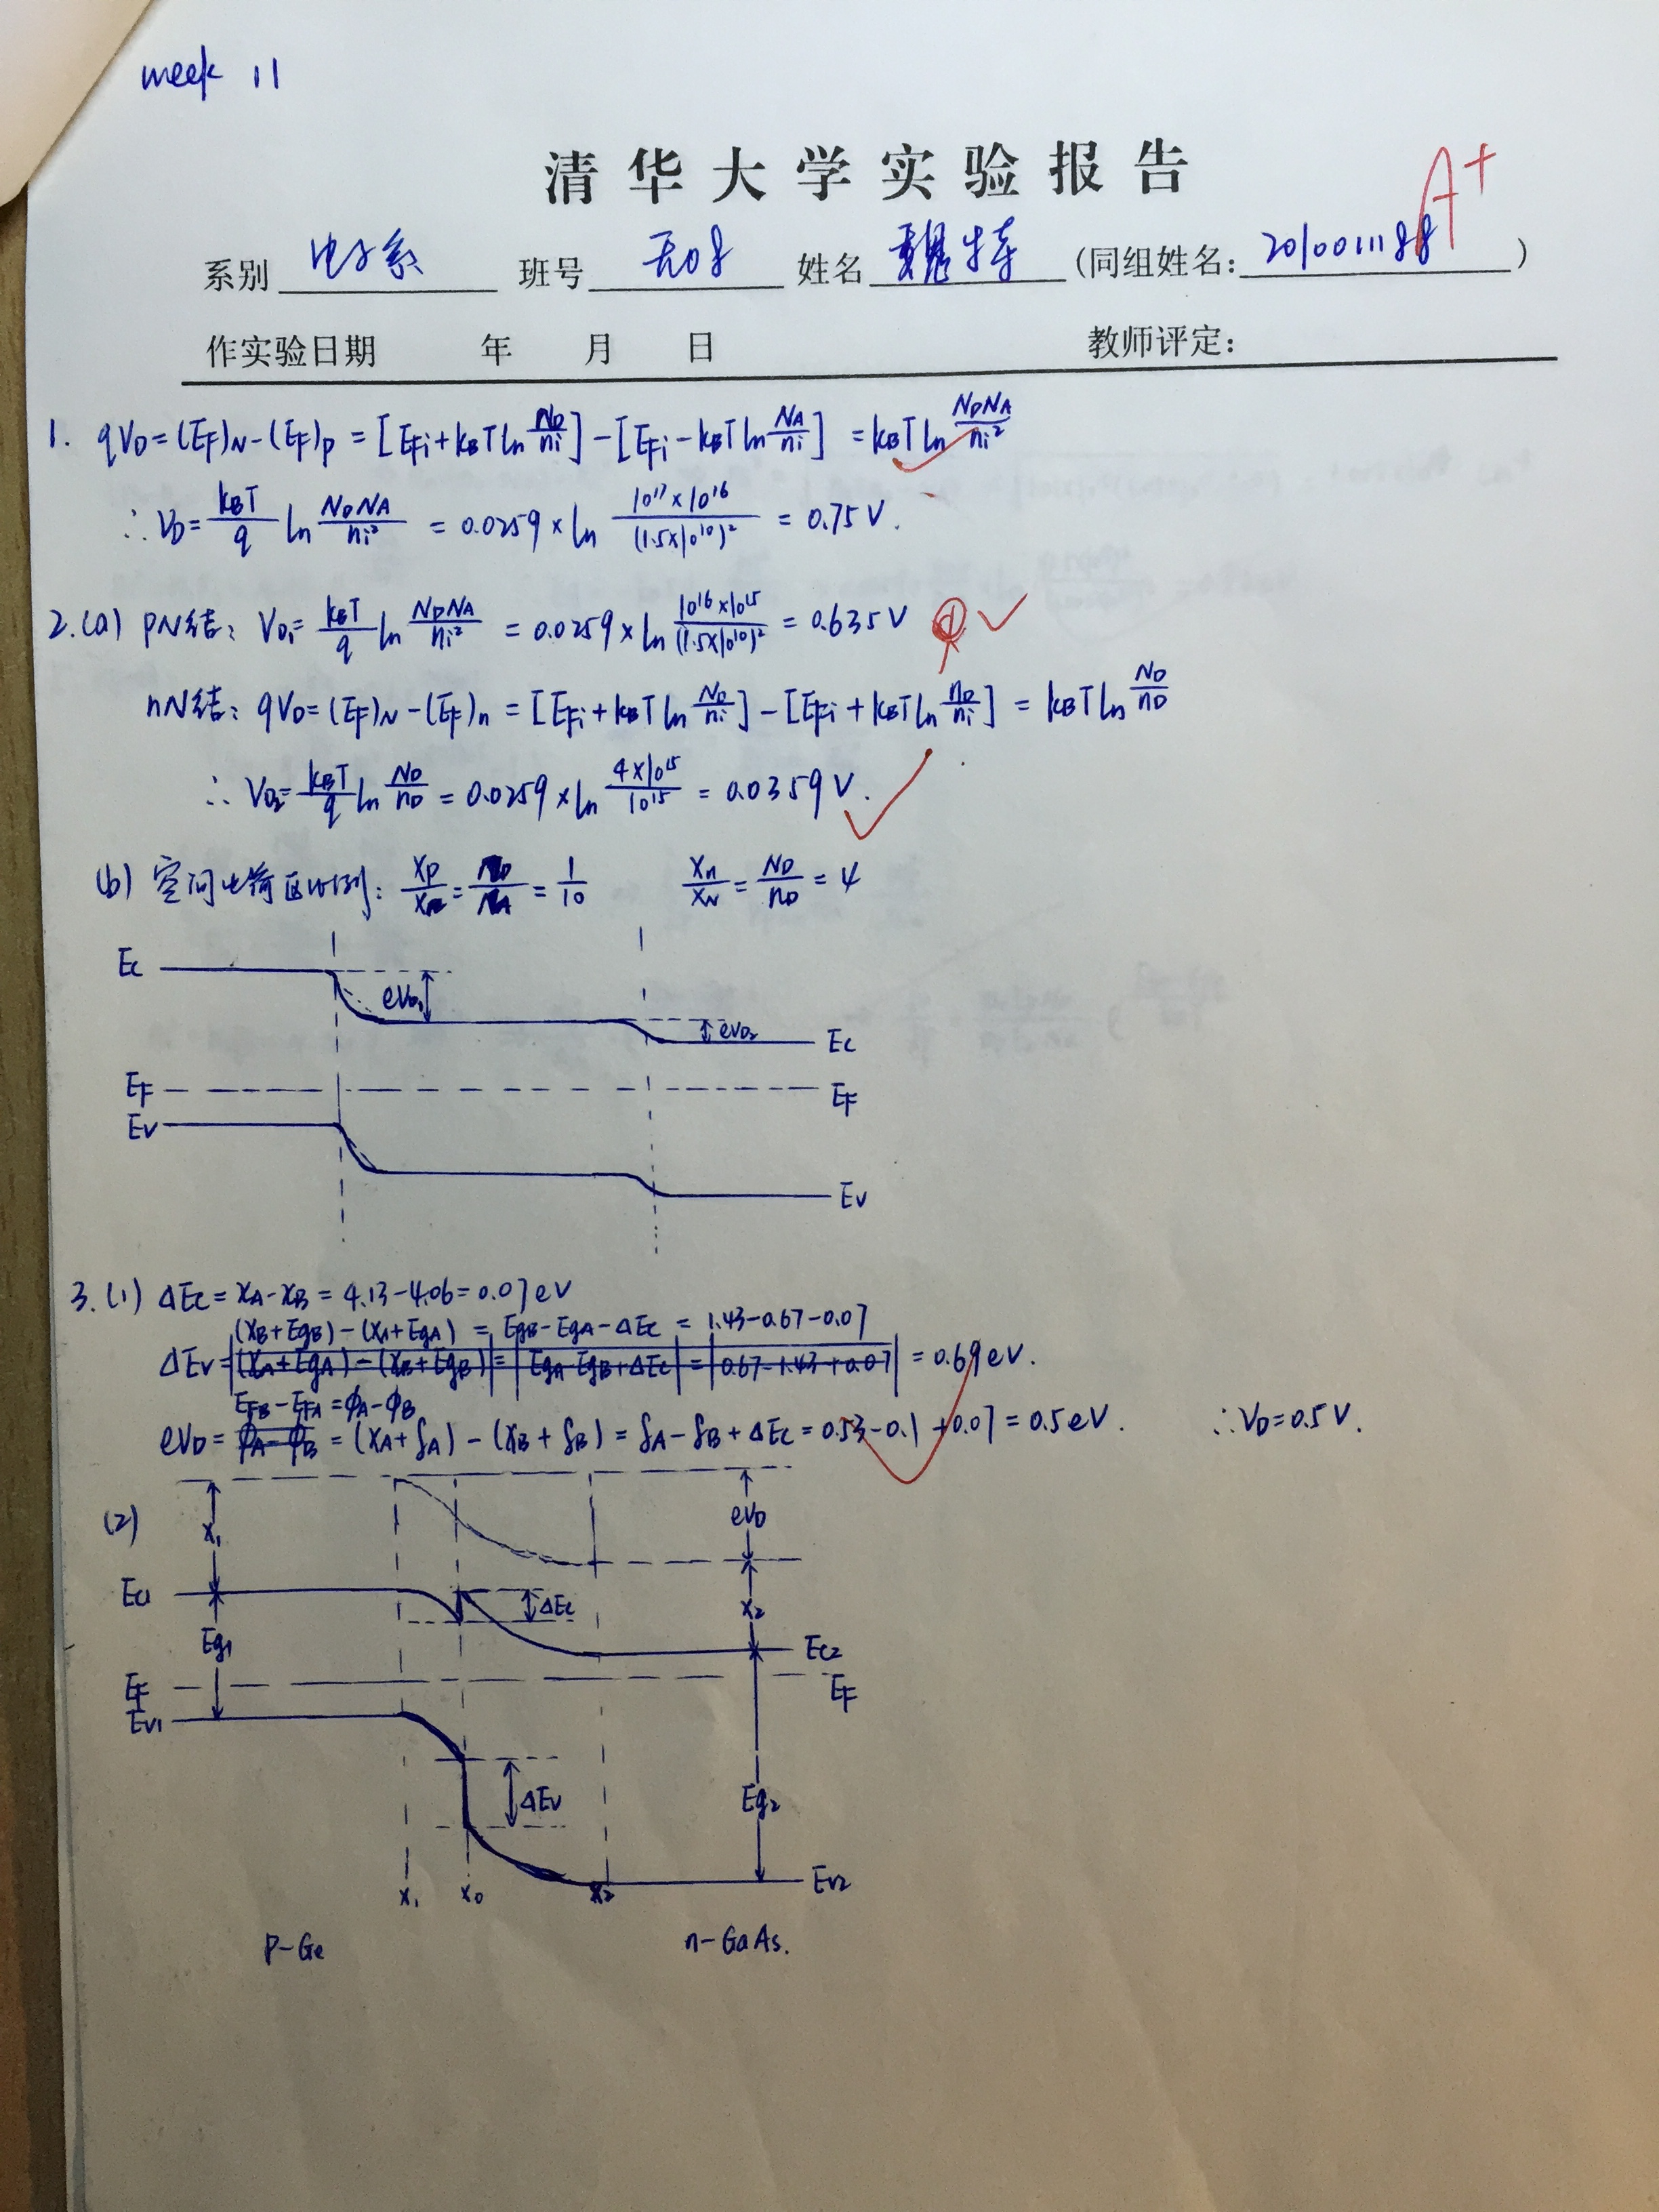 week 11
清华大学实验报告
A+
系别 电子系 班号 无08 姓名 (同组姓名: 2010011188)
作实验日期 年 月 日 教师评定:
1. qVD=(EF)N-(EF)P = [EFi+kBTln ND/ni]-[EFi-kBTln NA/ni] = kBTln NDNA/ni²
∴VD= kBT/q ln NDNA/ni² = 0.0259×ln 10¹⁷×10¹⁶/(1.5×10¹⁰)² = 0.75V.
2.(a) PN结: VD1= kBT/q ln NDNA/ni² = 0.0259×ln 10¹⁶×10¹⁵/(1.5×10¹⁰)² = 0.635V
nN结: qVD=(EF)N-(EF)n = [EFi+kBTln ND/ni]-[EFi+kBTln nD/ni] = kBTln ND/nD
∴ VD2= kBT/q ln ND/nD = 0.0259×ln 4×10¹⁵/10¹⁵ = 0.0359V.
(b) 空间电荷区比例: xp/xn = nD/NA = 1/10 xn/xN = ND/nD = 4
Ec
eVD1
eVD2
Ec
EF
EF
Ev
Ev
3.(1) ΔEc=χA-χB=4.13-4.06=0.07eV
(χB+EgB)-(χA+EgA) = EgB-EgA-ΔEc = 1.43-0.67-0.07
ΔEv=|(χA+EgA)-(χB+EgB)|=|EgA-EgB+ΔEc|=|0.67-1.43+0.07| = 0.69eV.
EFB-EFA=ϕA-ϕB
eVD= ϕA-ϕB = (χA+δA)-(χB+δB)=δA-δB+ΔEc=0.53-0.1+0.07=0.5eV. ∴VD=0.5V.
(2)
χ1
eVD
Ec1
ΔEc
χ2
Eg1
Ec2
EF
EF
Ev1
ΔEv
Eg2
Ev2
x1 x0 x2
P-Ge n-GaAs.